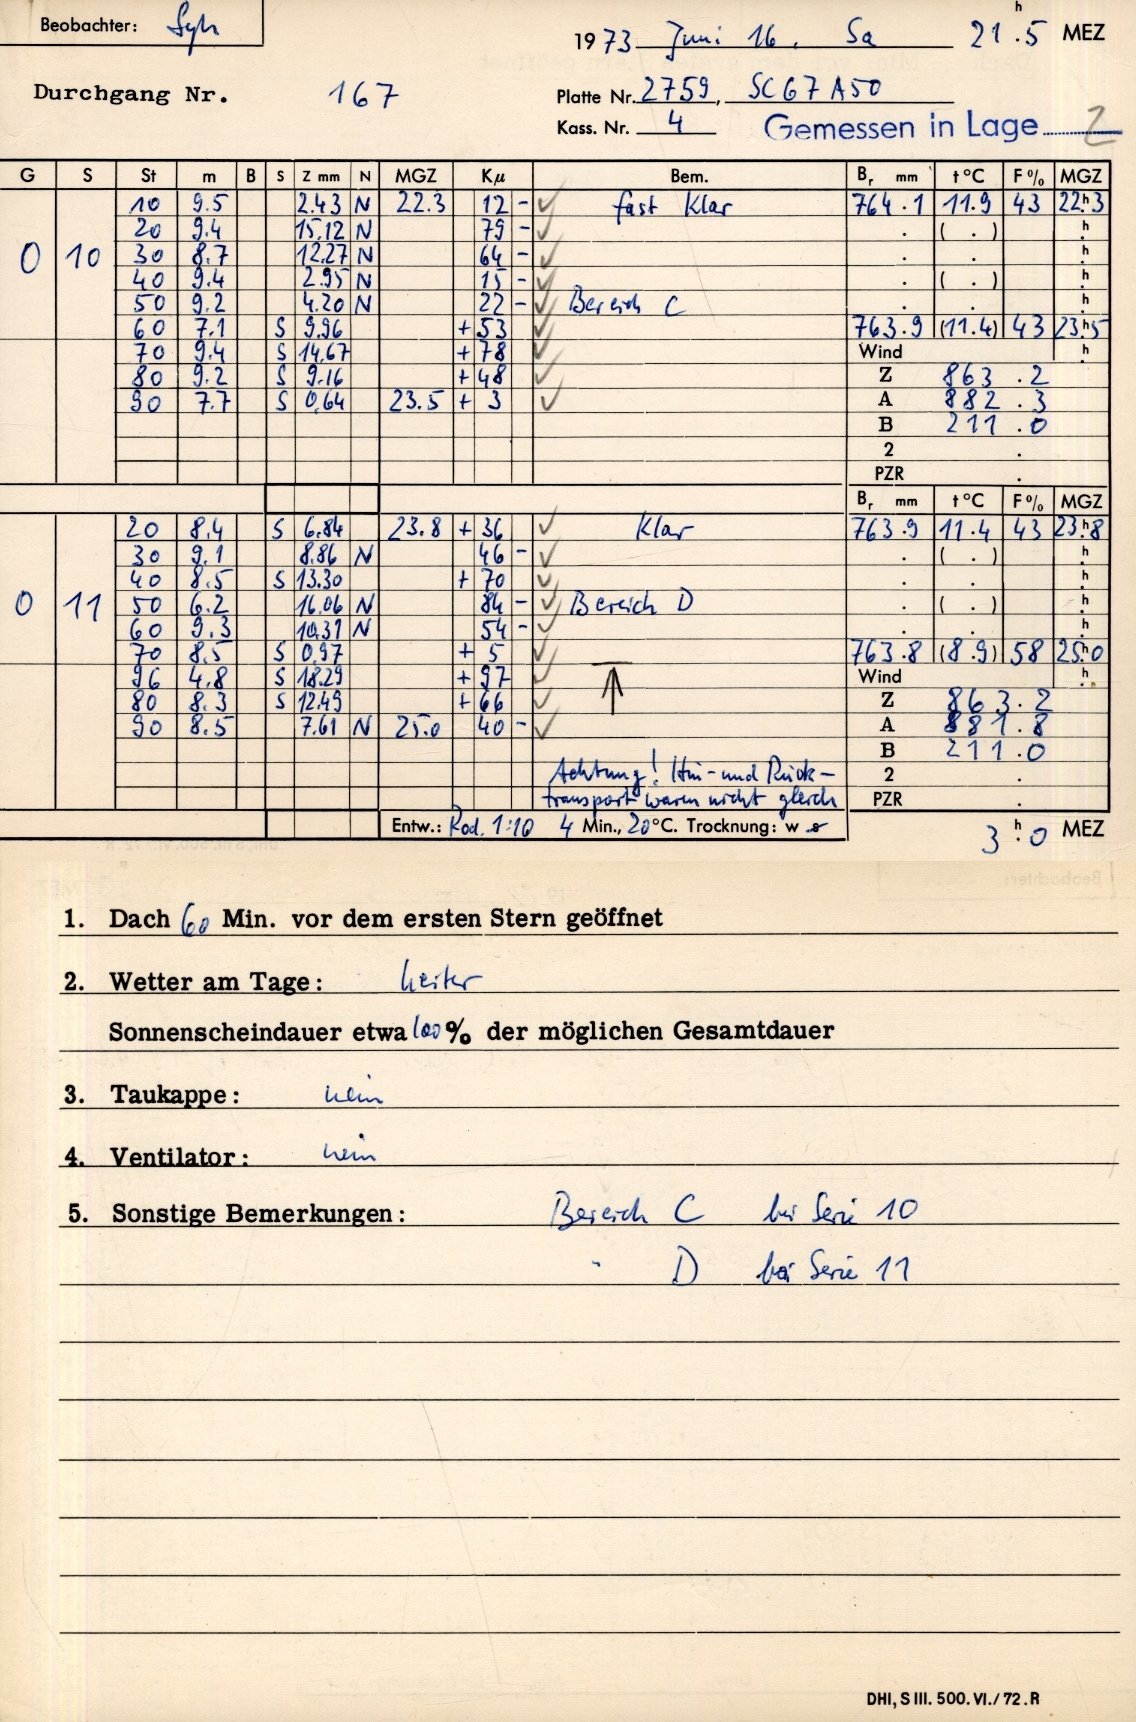 Beobachter: Syh
1973 Juni 16. Sa 21h.5 MEZ
Durchgang Nr. 167
Platte Nr. 2759, SC67A50
Kass. Nr. 4 Gemessen in Lage 2
G S St m B S Z mm N MGZ Kμ Bem. Br mm t°C F% MGZ
10 9.5 2.43 N 22.3 12 - fast klar 764.1 11.9 43 22h3
20 9.4 15.12 N 79 - . ( . ) h
0 10 30 8.7 12.27 N 64 - . . h
40 9.4 2.95 N 15 - . ( . ) h
50 9.2 4.20 N 22 - Bereich C . . h
60 7.1 S 9.96 + 53 763.9 (11.4) 43 23h5
70 9.4 S 14.67 + 78 Wind h
80 9.2 S 9.16 + 48 Z 863.2
90 7.7 S 0.64 23.5 + 3 A 882.3
B 211.0
2 .
PZR .
Br mm t°C F% MGZ
20 8.4 S 6.84 23.8 + 36 Klar 763.9 11.4 43 23h8
30 9.1 8.86 N 46 - . ( . ) h
40 8.5 S 13.30 + 70 . . h
0 11 50 6.2 16.06 N 84 - Bereich D . ( . ) h
60 9.3 10.31 N 54 - . . h
70 8.5 S 0.97 + 5 763.8 (8.9) 58 25h0
96 4.8 S 18.29 + 97 Wind h
80 8.3 S 12.49 + 66 Z 863.2
90 8.5 7.61 N 25.0 40 - A 881.8
B 211.0
Achtung! Hin- und Rück- 2 .
transport waren nicht gleich PZR .
Entw.: Rod. 1:10 4 Min., 20°C. Trocknung: w s 3h.0 MEZ
1. Dach 60 Min. vor dem ersten Stern geöffnet
2. Wetter am Tage: heiter
Sonnenscheindauer etwa 100% der möglichen Gesamtdauer
3. Taukappe: nein
4. Ventilator: nein
5. Sonstige Bemerkungen: Bereich C bei Serie 10
" D bei Serie 11
DHI, S III. 500. VI./72. R